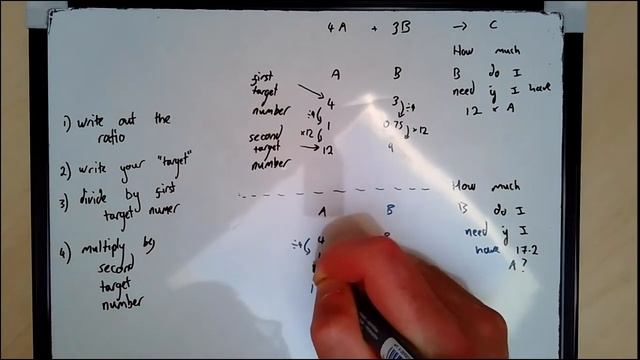 4A + 3B → C
How much
B do I
need if I have
12 x A
first
target
number
second
target
number
A B
4 3
÷4 ÷4
1 0.75
x12 x12
12 9
1) write out the
ratio
2) write your "target"
3) divide by first
target numer
4) multiply by
second
target
number
How much
B do I
need if I
have 17.2
A?
A B
÷4 4